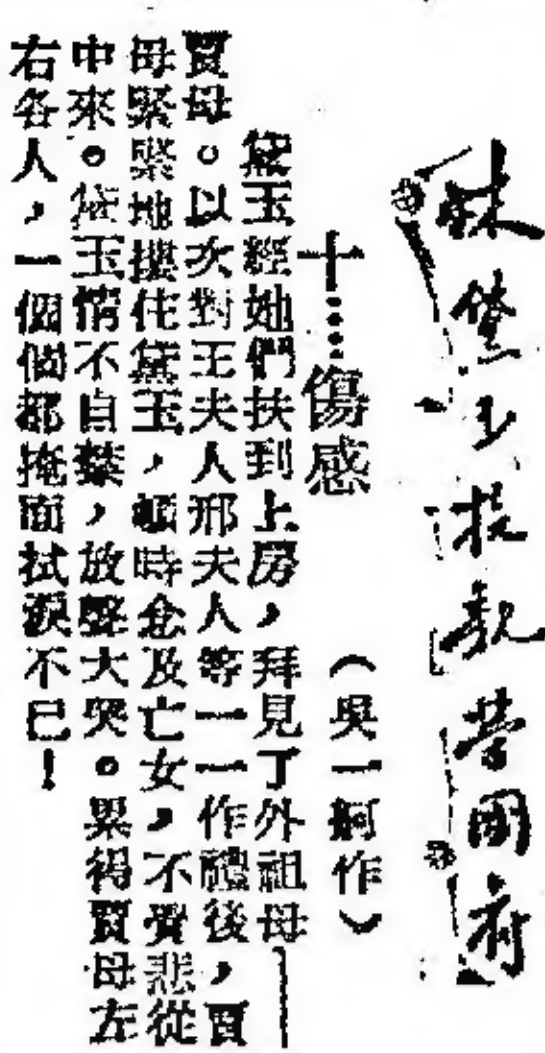 林黛玉投親榮國府
十……傷感
（吳一舸作）
黛玉經她們扶到上房，拜見了外祖母——
賈母。以次對王夫人邢夫人等一一作禮後，賈
母緊緊地摟住黛玉，頓時念及亡女，不覺悲從
中來。黛玉情不自禁，放聲大哭。累得賈母左
右各人，一個個都掩面拭淚不已！